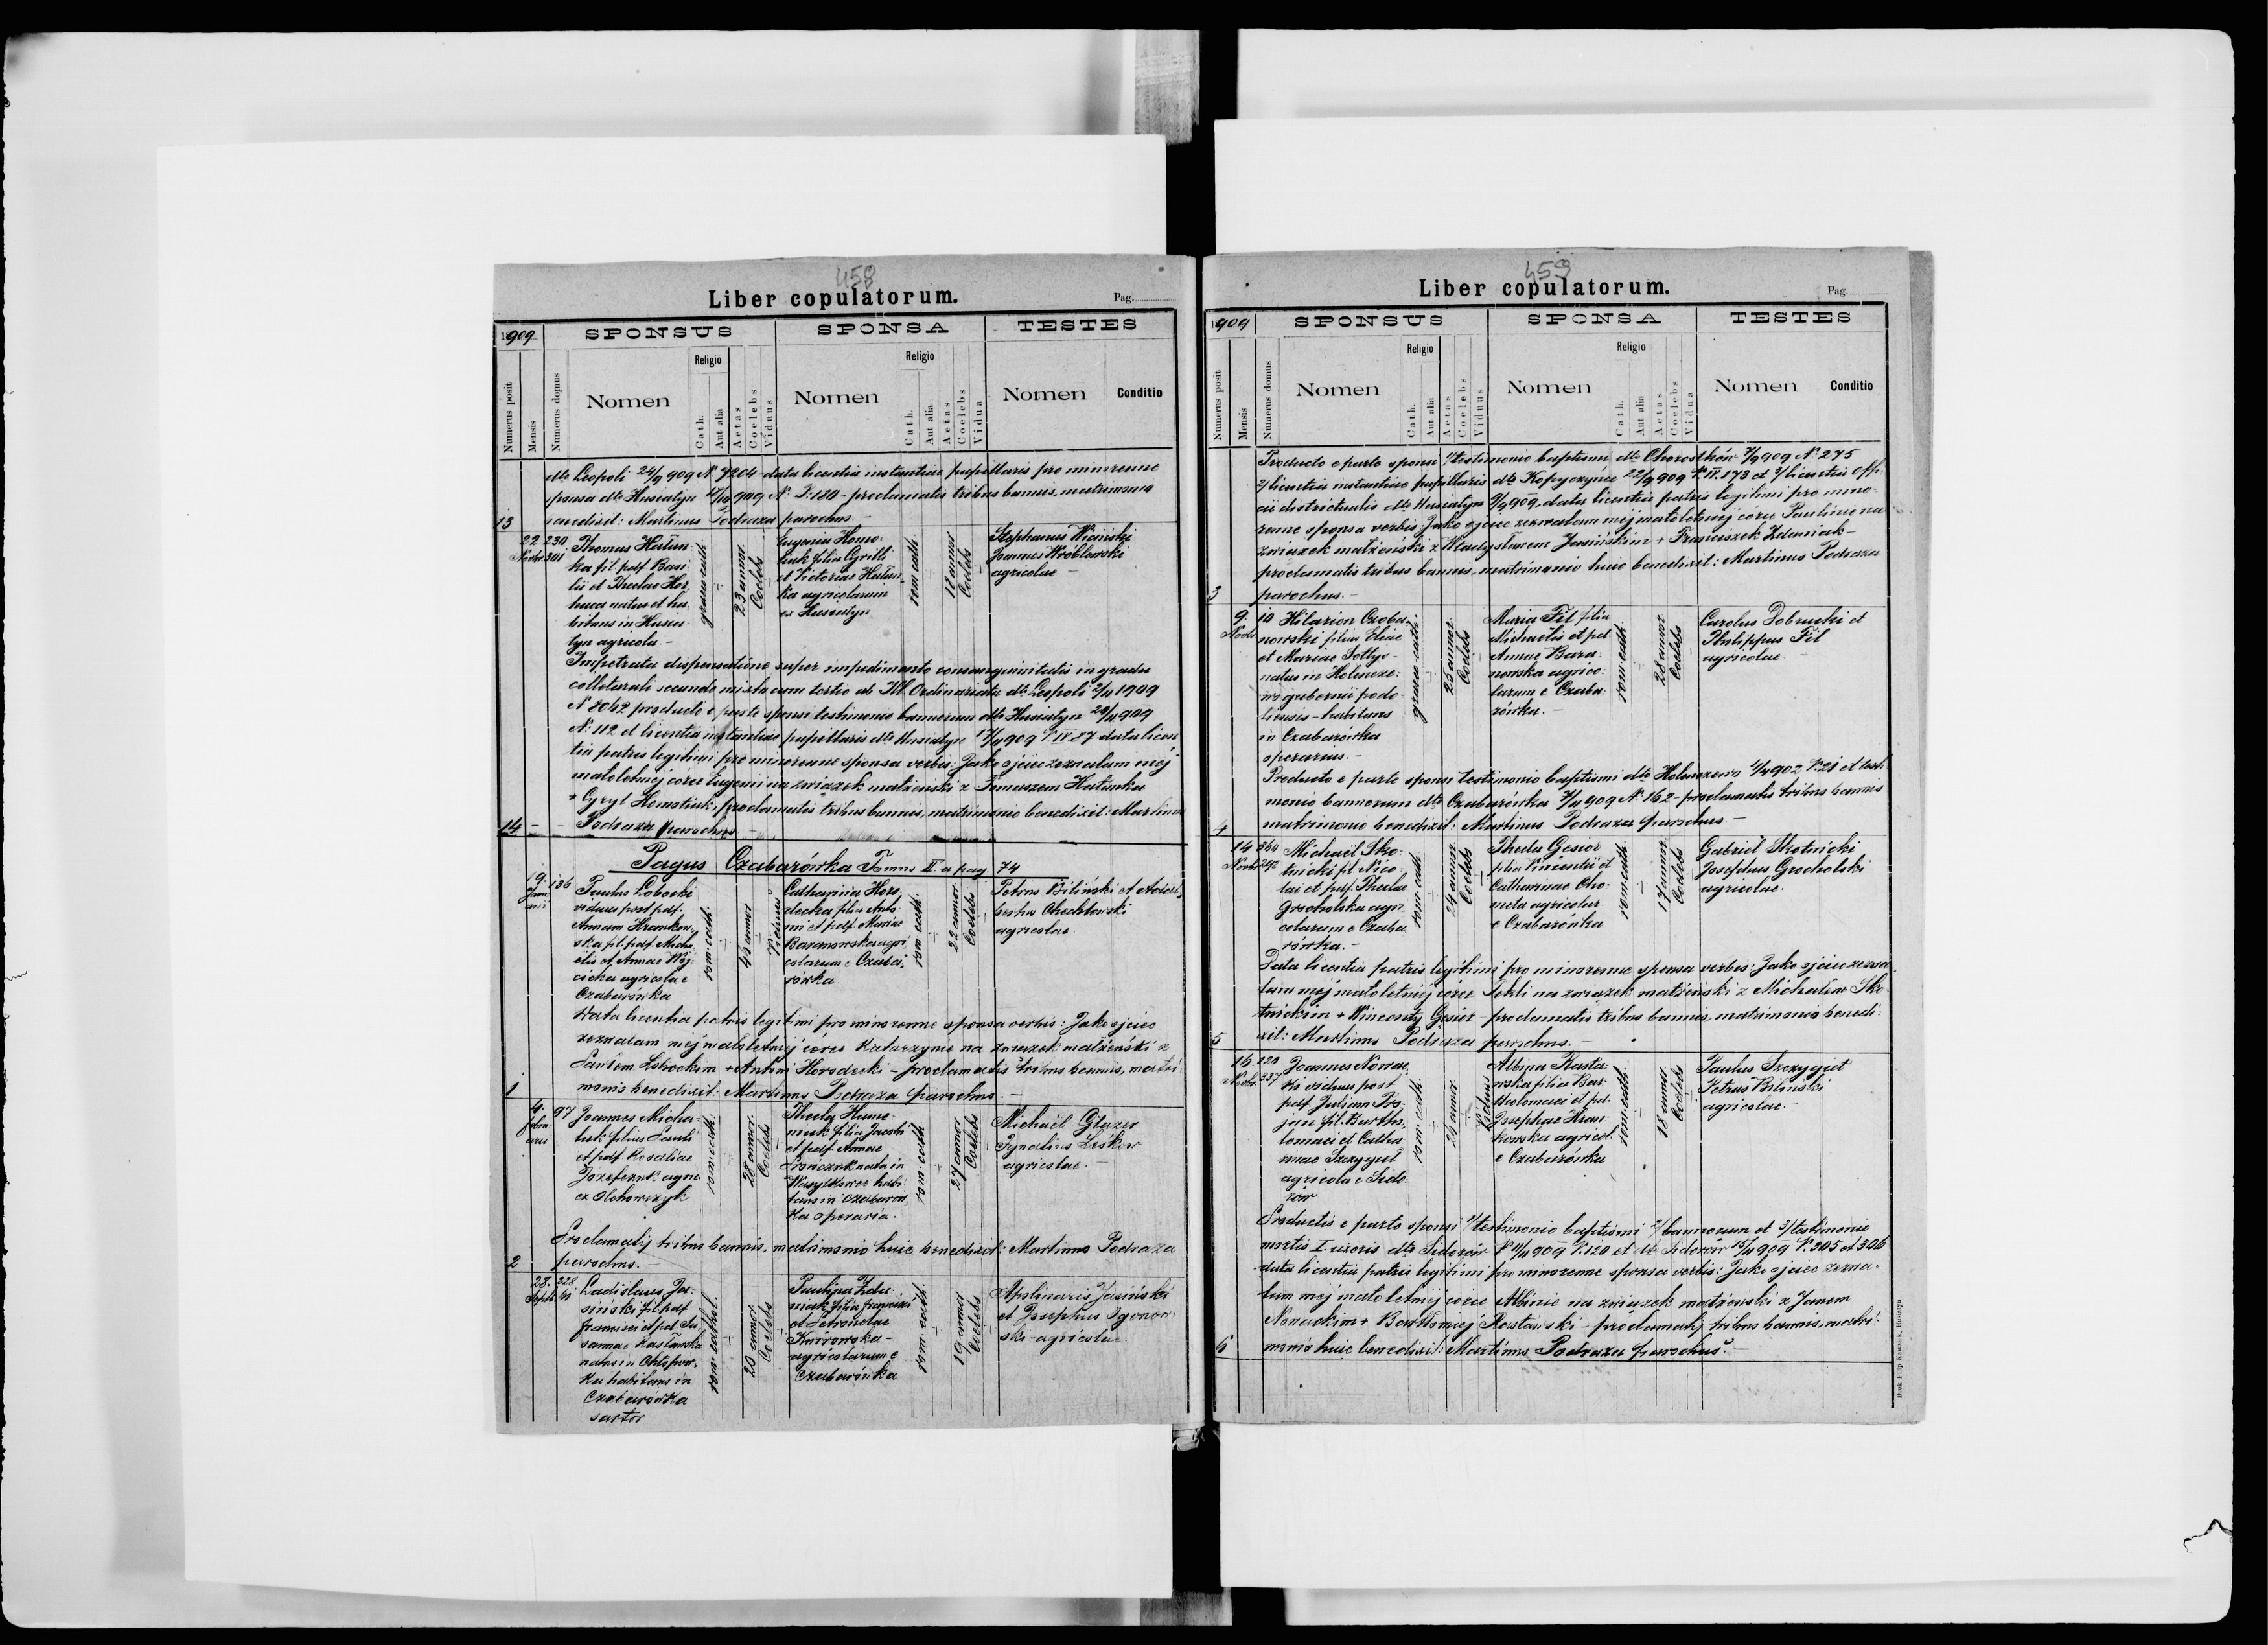 458
Liber copulatorum.
Pag.
1909
SPONSUS
SPONSA
TESTES
Numerus posit
Mensis
Numerus domus
Nomen
Religio
Cath.
Aut alia
Aetas
Coelebs
Viduus
Nomen
Religio
Cath.
Aut alia
Aetas
Coelebs
Vidua
Nomen
Conditio
dto Leopoli 24/9 909 N 7204 data licentia instantiae pupillaris pro minorenne
sponsa dto Husiatyn 909 N. P. 180 - proclamatis tribus bannis, matrimonio
benedixit: Martinus Podraza parochus.
13
22
Novbr
230
301
Thomas Hatun-
ka fil. pdf. Basi-
lii et Theclae Hor
natus et ha-
bitans in Husia-
tyn agricola -
graeco cath
23 annor
Coelebs
Eugenia Homo-
luk filia Cyrilli
et Victoriae Hatun-
ka agricolarum
ex Husiatyn
rom cath
18 annor
Coelebs
Stephanus
Joannes Wróblewski
agricolae -
Impetrata dispensatione super impedimento consanguinitatis in gradu
collaterali secundo mixto cum tertio ab Ill. Ordinariatu dto Leopoli 2/11 1909
N 8062 producto e parte sponsi testimonio bannorum dto Husiatyn 20/11 909
N. 112 et licentia instantiae pupillaris dto Husiatyn 17/11 909 P. IV 87 data licen
tia patris legitimi pro minorenne sponsa verbis: Jako ojciec zezwalam mej
małoletniej córce Eugenii na związek małżeński z Tomaszem Hatunka
+ Cyryl proclamatis tribus bannis, matrimonio benedixit: Martinus
14 - Podraza parochus -
Pagus Czabarówka Tomus II a pag. 74
19.
Janu
arii
136
Paulus Łobocki
viduus post pdf.
Annam Hrankow-
ska fil. pdf. Micha
elis et Annae Wój-
cicka agricola e
Czabarówka
rom. cath.
43 annor
Viduus
Catharina Horo
decka filia Anto
nii et pdf. Mariae
Baranowska agri
colarum e Czaba-
rówka
rom cath.
22 annor
Coelebs
Petrus Biliński et Adal-
bertus Chechłowski
agricolae.
Data licentia patris legitimi pro minorenne sponsa verbis: Jako ojciec
zezwalam mej małoletniej córce Katarzynie na związek małżeński z
Pawłem Łobockim + Antoni Horodecki - proclamatis tribus bannis, matri-
1 monio benedixit: Martinus Podraza parochus. -
4.
febru
arii
97
Joannes Micha-
luk filius Pauli
et pdf. Rosaliae
Jozefczuk agric
ex Olchowczyk
rom. cath.
28 annor.
Coelebs
Thecla Hume-
niuk filia Jacobi
et pdf. Annae
nata in
Wasylkowce habi-
tans in Czabarów
ka operaria.
rom. cath
27 annor
Coelebs
Michaël Glazer
Ignatius Leśków
agricolae. -
Proclamatis tribus bannis, matrimonio huic benedixit: Martinus Podraza
2 parochus. -
28.
Septb.
228
Ladislaus Ja-
siński fil. pdf.
Francisci et pdf. Su
sannae
natus in
ka habitans in
Czabarówka
sartor
rom. cathol.
Coelebs
Paulina Zda-
niak filia Francisci
et Petronelae
Kurowska -
agricolarum e
Czabarówka
rom. cath.
19 annor.
Coelebs
Apolinaris Jasiński
et Josephus Ogonow
ski - agricolae.
459
Liber copulatorum.
Pag.
1909
SPONSUS
SPONSA
TESTES
Numerus posit
Mensis
Numerus domus
Nomen
Religio
Cath.
Aut alia
Aetas
Coelebs
Viduus
Nomen
Religio
Cath.
Aut alia
Aetas
Coelebs
Vidua
Nomen
Conditio
Producto e parte sponsi 1/ testimonio baptismi dto Chorostków 7/9 909 N. 275
2/ licentia instantiae pupillaris dto Kopyczyńce 22/9 909 P. IV. 173 et 3/ licentia offi-
cii districtualis dto Husiatyn 909. data licentia patris legitimi pro mino-
renne sponsa verbis: Jako ojciec zezwalam mej małoletniej córce Paulinie na
związek małżeński z Władysławem Jasińskim + Franciszek Zdaniak -
proclamatis tribus bannis - matrimonio huic benedixit: Martinus Podraza
3 parochus. -
9.
Novbr
10
Hilarion Czaba
nowski filius Eliae
et Mariae Sołtys -
natus in Holenisze-
wo gubernii podo-
liensis - habitans
in Czabarówka
operarius. -
graeco cath.
25 annor
Coelebs
Maria Fil filia
Michaelis et pdf.
Annae Bara-
nowska agrico-
larum e Czaba-
rówka. -
rom. cath
28 annor
Coelebs
Carolus Dobrucki et
Philippus Fil
agricolae. -
Producto e parte sponsi testimonio baptismi dto Holeniszewo 902 N. 21 et testi
monio bannorum dto Czabarówka 7/11 909 N. 162 - proclamatis tribus bannis
4 matrimonio benedixit: Martinus Podraza parochus -
14
Novbr
360
242
Michaël Sko-
tnicki fil. Nico-
lai et pdf. Theclae
Grocholska agri-
colarum e Czaba
rówka. -
rom. cath
24 annor.
Coelebs
Thecla Gesior
filia Vincentii et
Catharinae Cho-
meta agricolar.
e Czabarówka
rom. cath.
17 annor.
Coelebs
Gabriel Skotnicki
Josephus Grocholski
agricolae.
Data licentia patris legitimi pro minorenne sponsa verbis: Jako ojciec zezwa
lam mej małoletniej córce Tekli na związek małżeński z Michałem Sko
tnickim + Wincenty Gesior - proclamatis tribus bannis, matrimonio benedi-
5 xit: Martinus Podraza parochus. -
16.
Novbr
120
337
Joannes Nowac
ki viduus post
pdf. Juliam Tro-
jan fil. Bartho-
lomaei et Catha
rinae Szczygieł
agricola e Sido-
rów
rom. cath.
annor
Viduus
Albina Rasta-
wska filia Bar-
tholomaei et pdf.
Josephae Hran-
kowska agricol.
e Czabarówka
rom. cath.
18 annor.
Coelebs
Paulus Szczygieł
Petrus Biliński
agricolae. -
Productis e parte sponsi 1/ testimonio baptismi 2/ bannorum et 3/ testimonio
mortis I. uxoris dto Sidorów 909 N. 120 et dto Sidorów 15/11 909 N. 305 et 306
data licentia patris legitimi pro minorenne sponsa verbis: Jako ojciec zezwa-
lam mej małoletniej córce Albinie na związek małżeński z Janem
Nowackim + Bartłomiej Rastawski - proclamatis tribus bannis, matri-
6 monio huic benedixit: Martinus Podraza parochus. -
Druk Filip Kawaszek, Husiatyn